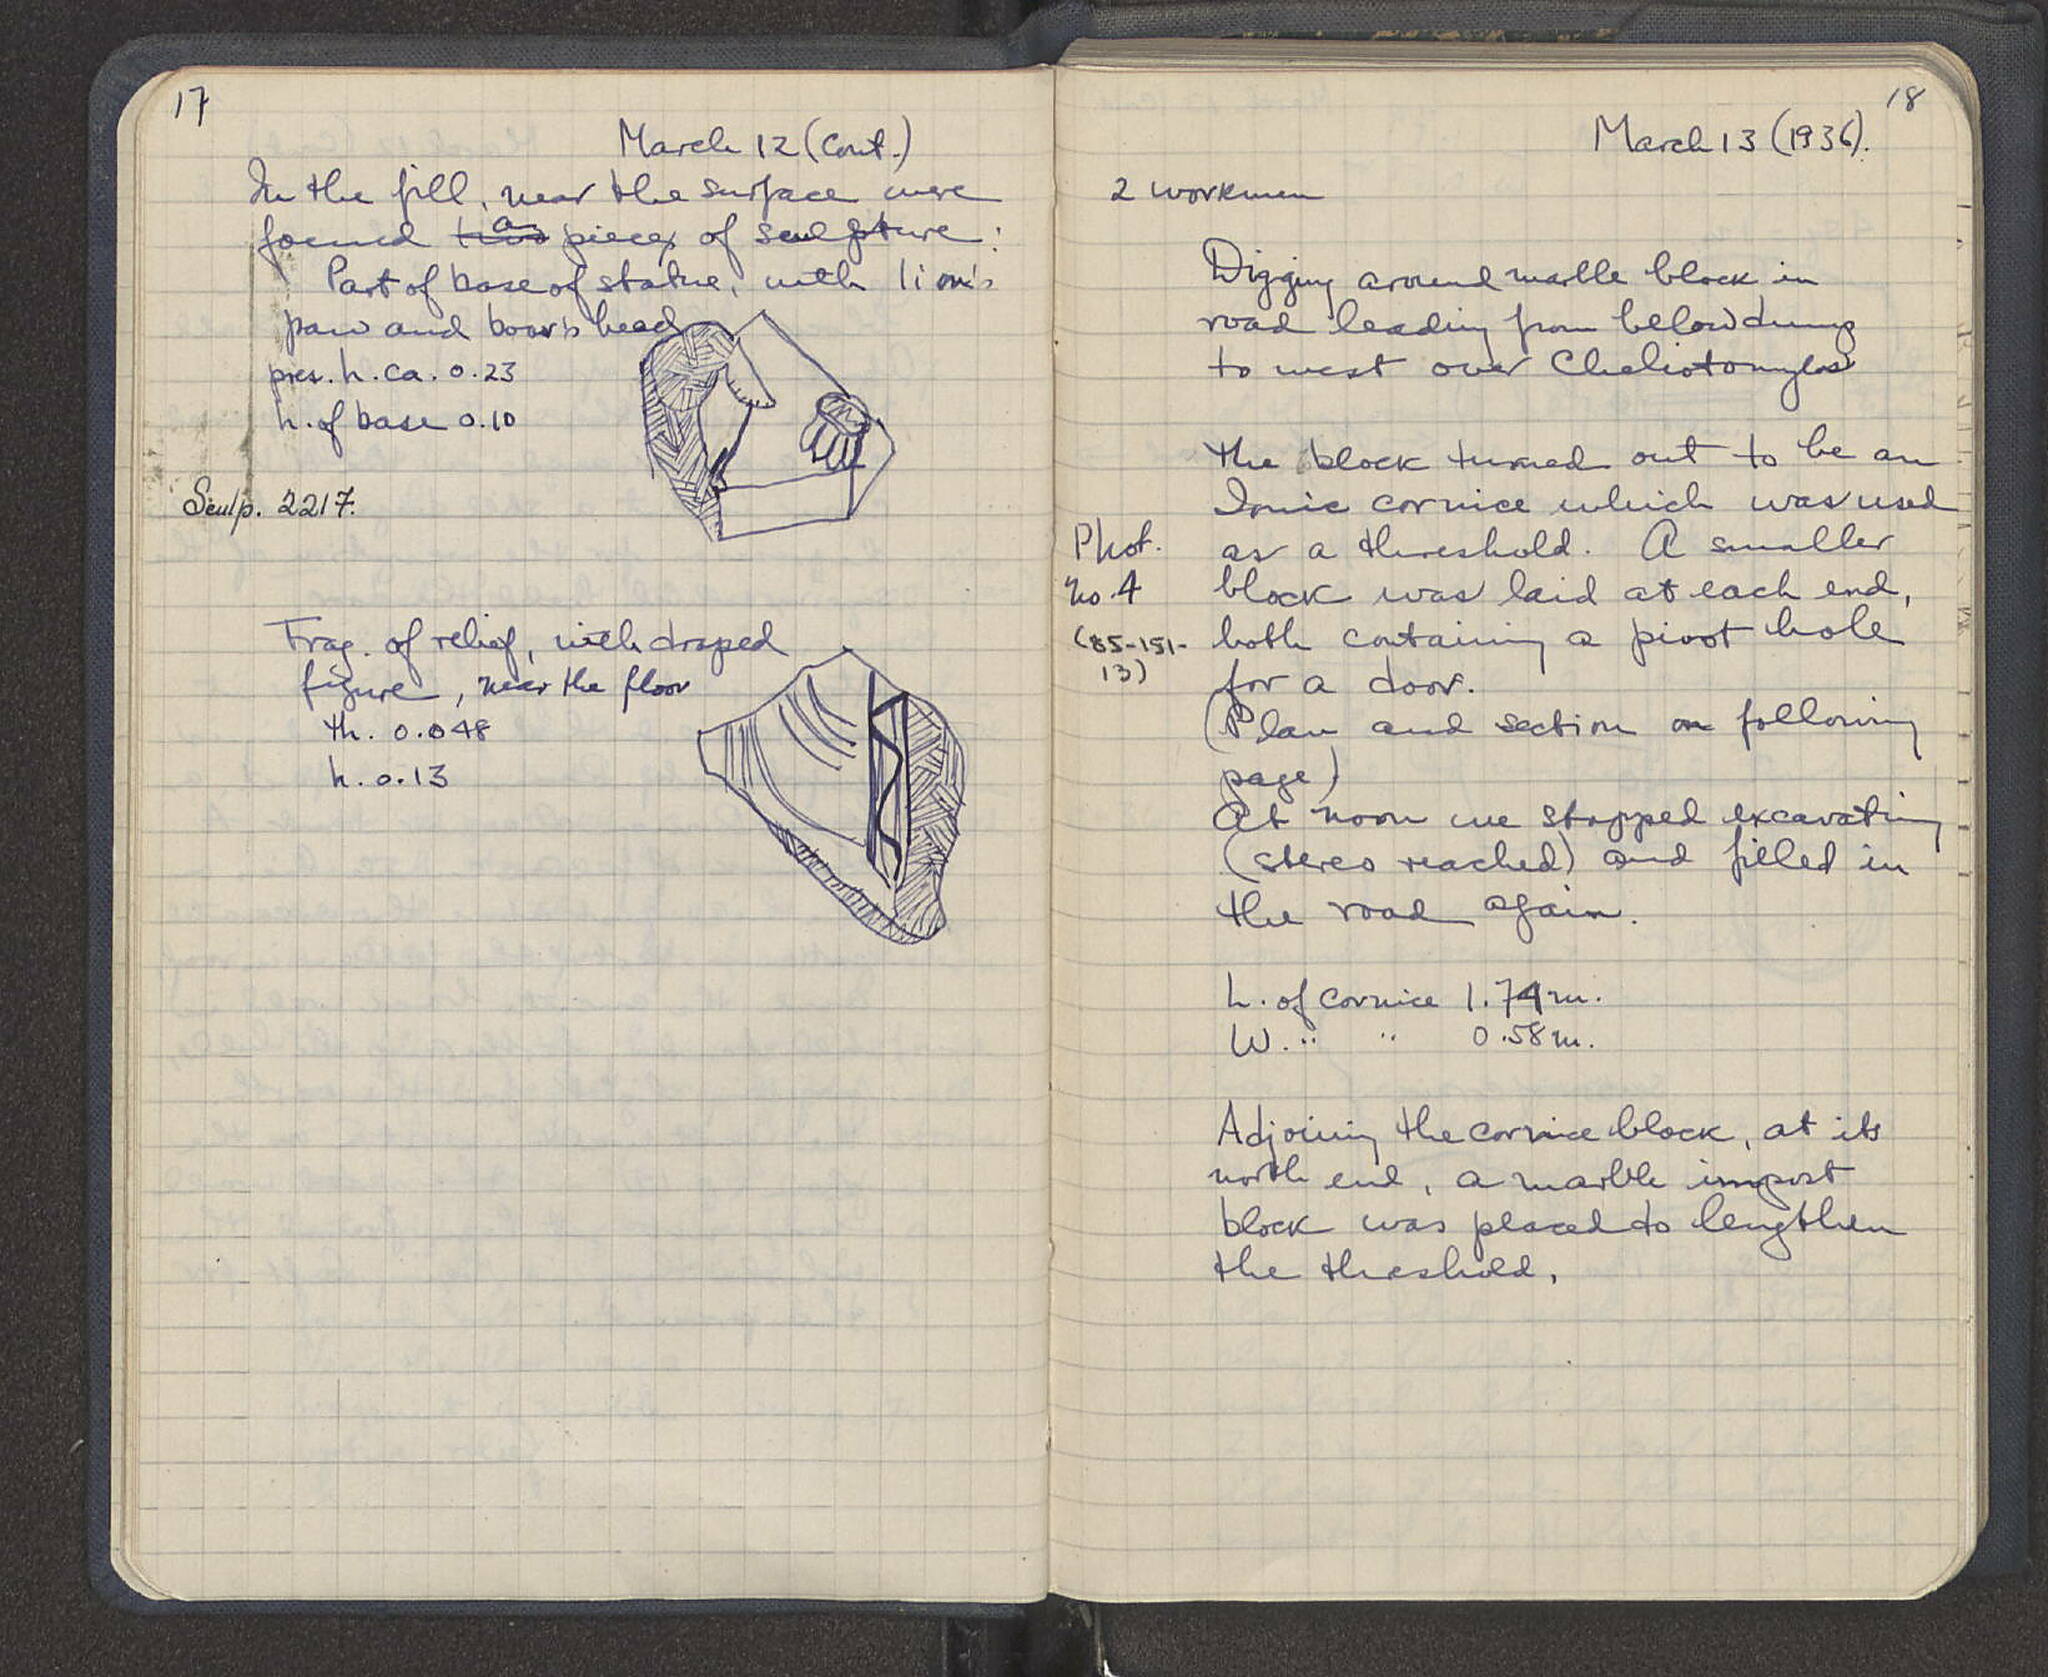 17
March 12 (Cont.)
In the fill, near the surface were
found two a pieces of sculpture:
Part of base of statue, with lion's
paw and boar's head
pres. h. ca. 0.23
h. of base 0.10
Sculp. 2217.
Frag. of relief, with draped
figure, near the floor
th. 0.048
h. 0.13
18
March 13 (1936).
2 workmen
Digging around marble block in
road leading from below dump
to west over Cheliotomylos
The block turned out to be an
Ionic cornice which was used
Phot. as a threshold. A smaller
no. 4 block was laid at each end,
(85-151- both containing a pivot hole
13) for a door.
(Plan and section on following
page)
At noon we stopped excavating
(stereo reached) and filled in
the road again.
L. of cornice 1.74 m.
W. " " 0.58 m.
Adjoining the cornice block, at its
north end, a marble impost
block was placed to lengthen
the threshold.